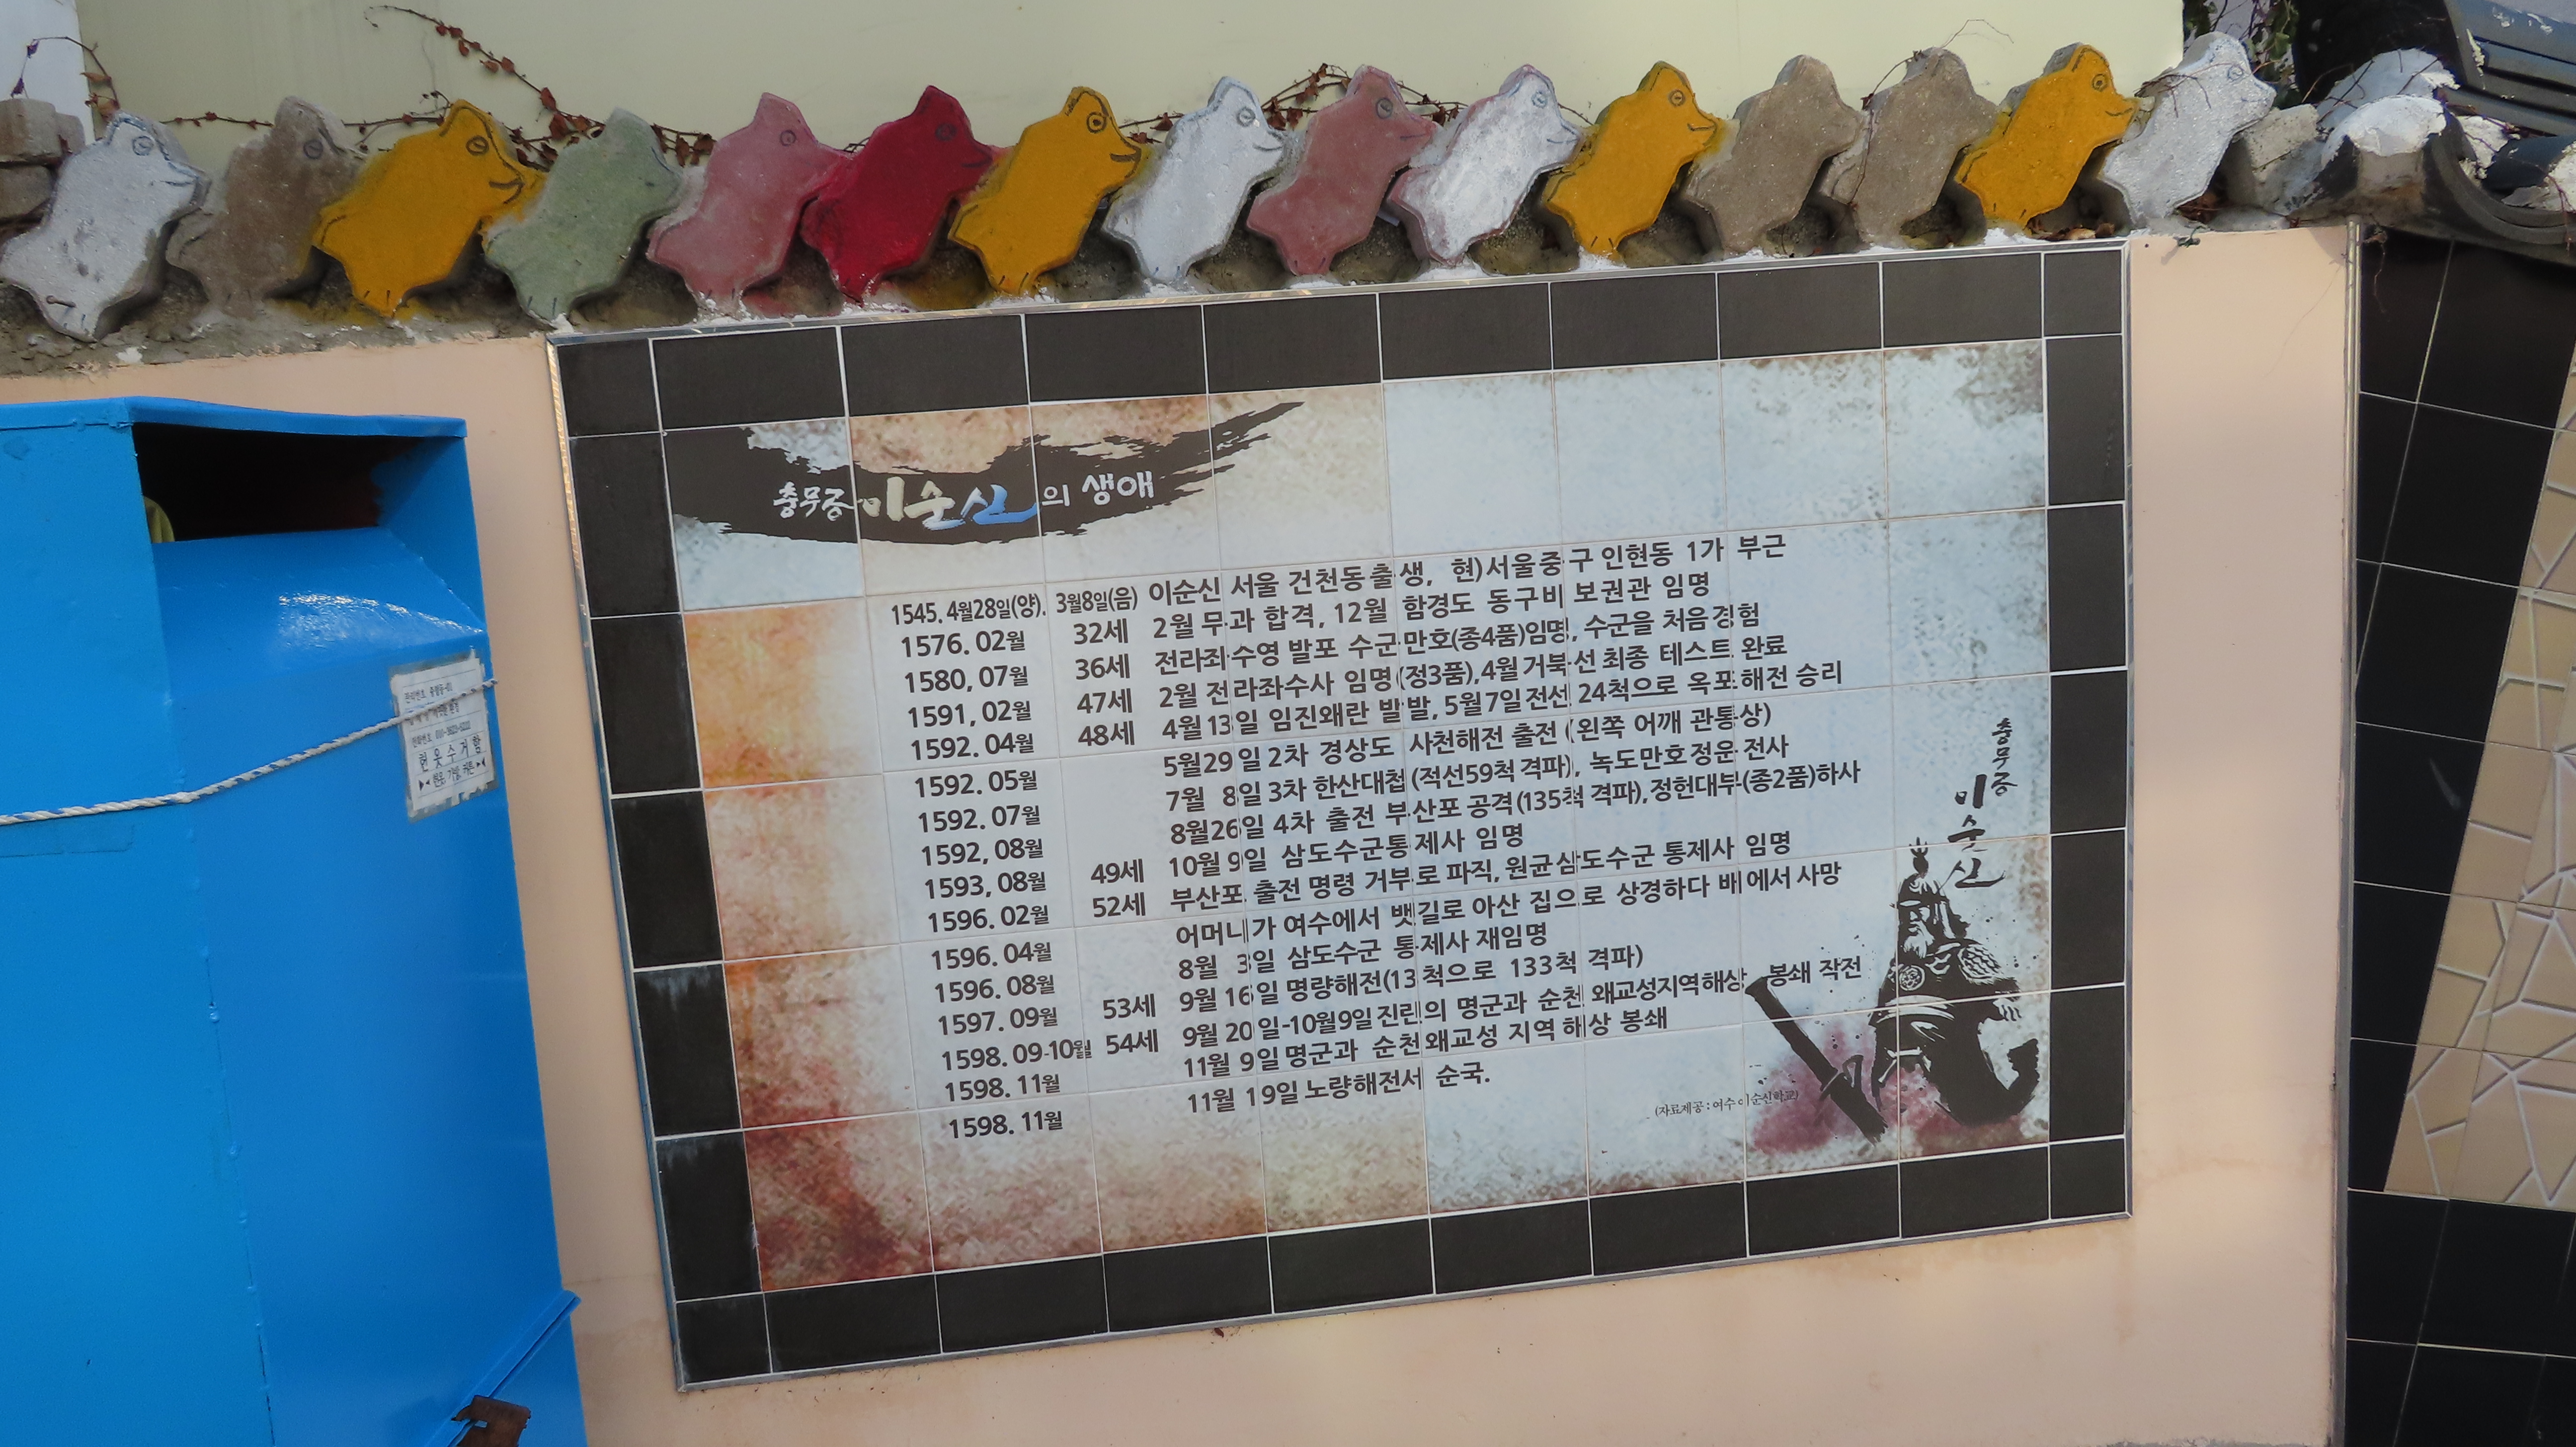 충무공 이순신의 생애
1545. 4월28일(양). 3월8일(음) 이순신 서울 건천동출생, 현)서울중구 인현동 1가 부근
1576. 02월 32세 2월 무과 합격, 12월 함경도 동구비 보권관 임명
1580, 07월 36세 전라좌수영 발포 수군만호(종4품)임명, 수군을 처음경험
1591, 02월 47세 2월 전라좌수사 임명(정3품),4월거북선 최종 테스트 완료
1592. 04월 48세 4월 13일 임진왜란 발발, 5월7일전선 24척으로 옥포해전 승리
1592. 05월 5월29일 2차 경상도 사천해전 출전 (왼쪽 어깨 관통상)
1592. 07월 7월 8일 3차 한산대첩(적선59척 격파), 녹도만호정운 전사
1592, 08월 8월26일 4차 출전 부산포 공격(135척 격파),정헌대부(종2품)하사
1593, 08월 49세 10월 9일 삼도수군통제사 임명
1596. 02월 52세 부산포 출전 명령 거부로 파직, 원균삼도수군 통제사 임명
1596. 04월 어머니가 여수에서 뱃길로 아산 집으로 상경하다 배에서 사망
1596. 08월 8월 3일 삼도수군 통제사 재임명
1597. 09월 53세 9월 16일 명량해전(13척으로 133척 격파)
1598. 09-10월 54세 9월 20일-10월9일진린의 명군과 순천 왜교성지역해상 봉쇄 작전
1598. 11월 11월 9일명군과 순천왜교성 지역 해상 봉쇄
1598. 11월 11월 19일노량해전서 순국.
(자료제공 : 여수이순신학교)
충무공
이순신
헌옷수거함